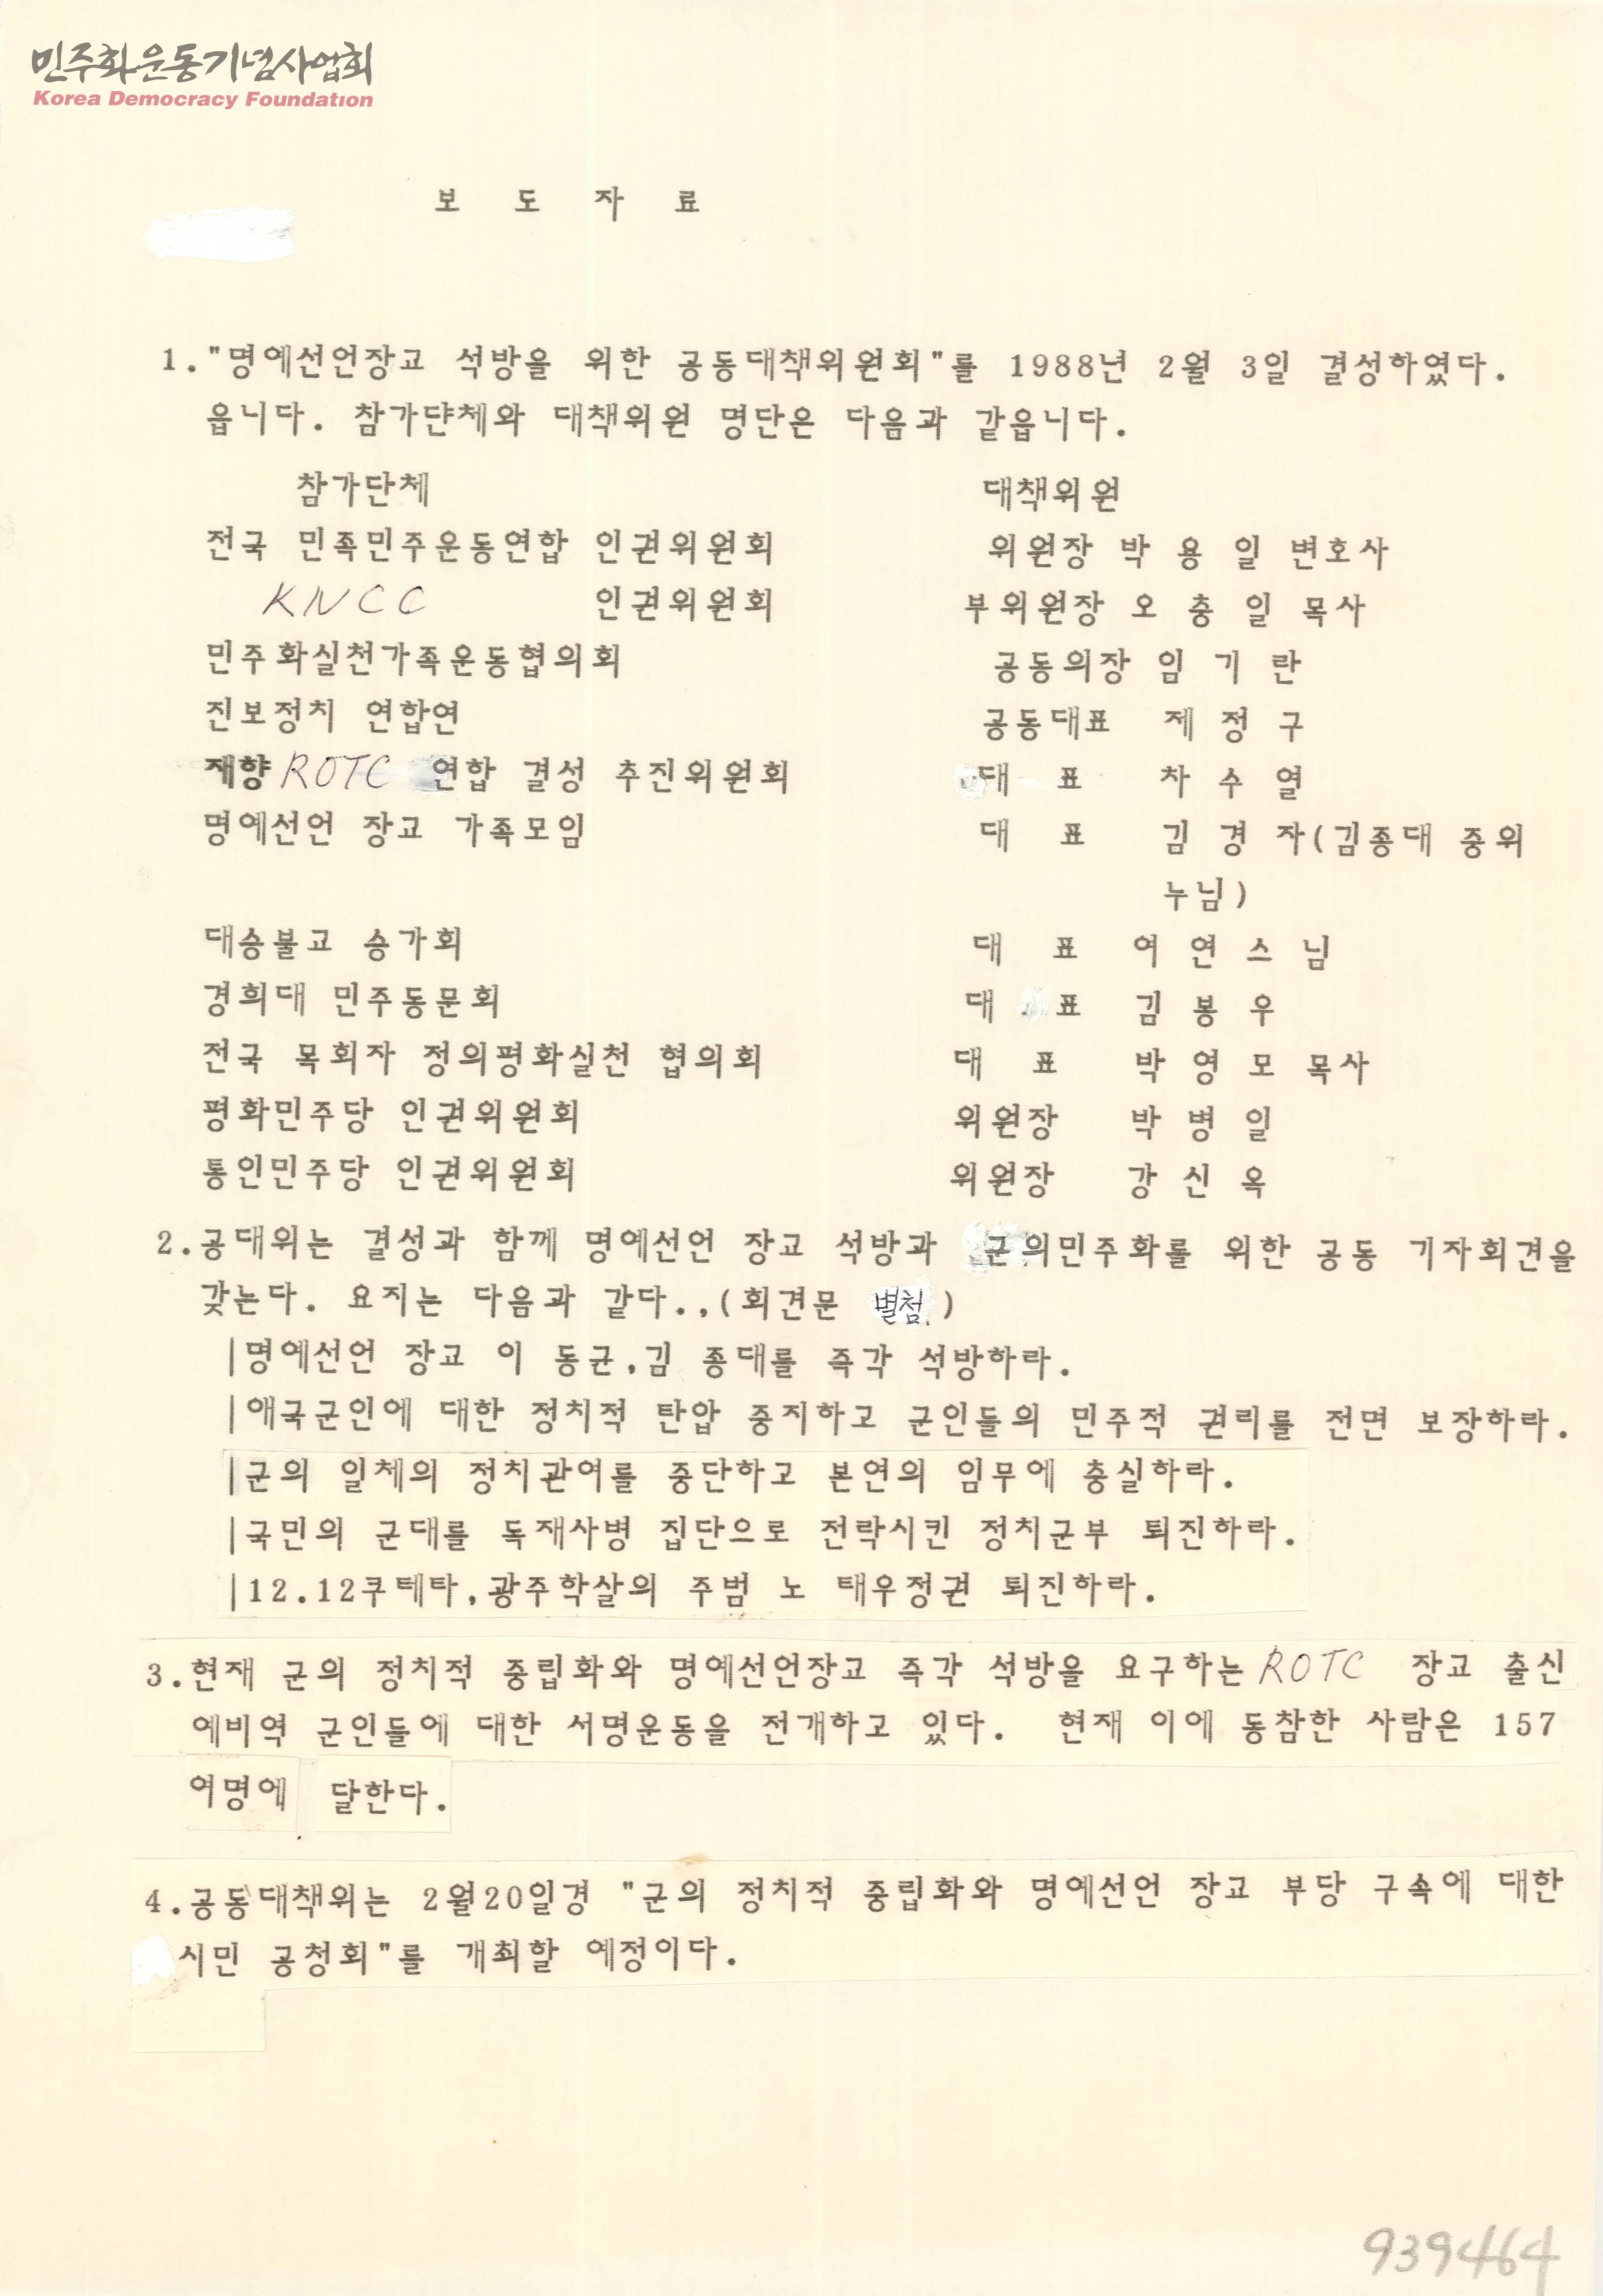 민주화운동기념사업회
Korea Democracy Foundation
보 도 자 료
1."명예선언장교 석방을 위한 공동대책위원회"를 1988년 2월 3일 결성하였다.
읍니다. 참가댠체와 대책위원 명단은 다음과 같읍니다.
참가단체 대책위원
전국 민족민주운동연합 인권위원회 위원장 박 용 일 변호사
KNCC 인권위원회 부위원장 오 충 일 목사
민주화실천가족운동협의회 공동의장 임 기 란
진보정치 연합연 공동대표 제 정 구
재향 ROTC 연합 결성 추진위원회 대 표 차 수 열
명예선언 장교 가족모임 대 표 김 경 자(김종대 중위
누님)
대승불교 승가회 대 표 여 연 스 님
경희대 민주동문회 대 표 김 봉 우
전국 목회자 정의평화실천 협의회 대 표 박 영 모 목사
평화민주당 인권위원회 위원장 박 병 일
통인민주당 인권위원회 위원장 강 신 옥
2.공대위는 결성과 함께 명예선언 장교 석방과 군의민주화를 위한 공동 기자회견을
갖는다. 요지는 다음과 같다..,(회견문 별첨)
|명예선언 장교 이 동균,김 종대를 즉각 석방하라.
|애국군인에 대한 정치적 탄압 중지하고 군인들의 민주적 권리를 전면 보장하라.
|군의 일체의 정치관여를 중단하고 본연의 임무에 충실하라.
|국민의 군대를 독재사병 집단으로 전락시킨 정치군부 퇴진하라.
|12.12쿠테타,광주학살의 주범 노 태우정권 퇴진하라.
3.현재 군의 정치적 중립화와 명예선언장교 즉각 석방을 요구하는 ROTC 장교 출신
예비역 군인들에 대한 서명운동을 전개하고 있다. 현재 이에 동참한 사람은 157
여명에 달한다.
4.공동대책위는 2월20일경 "군의 정치적 중립화와 명예선언 장교 부당 구속에 대한
시민 공청회"를 개최할 예정이다.
939464